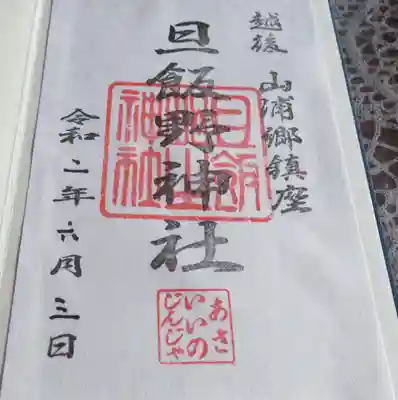 越後 山浦郷鎮座
旦飯野神社
令和二年六月三日
あさ
いいの
じんじゃ